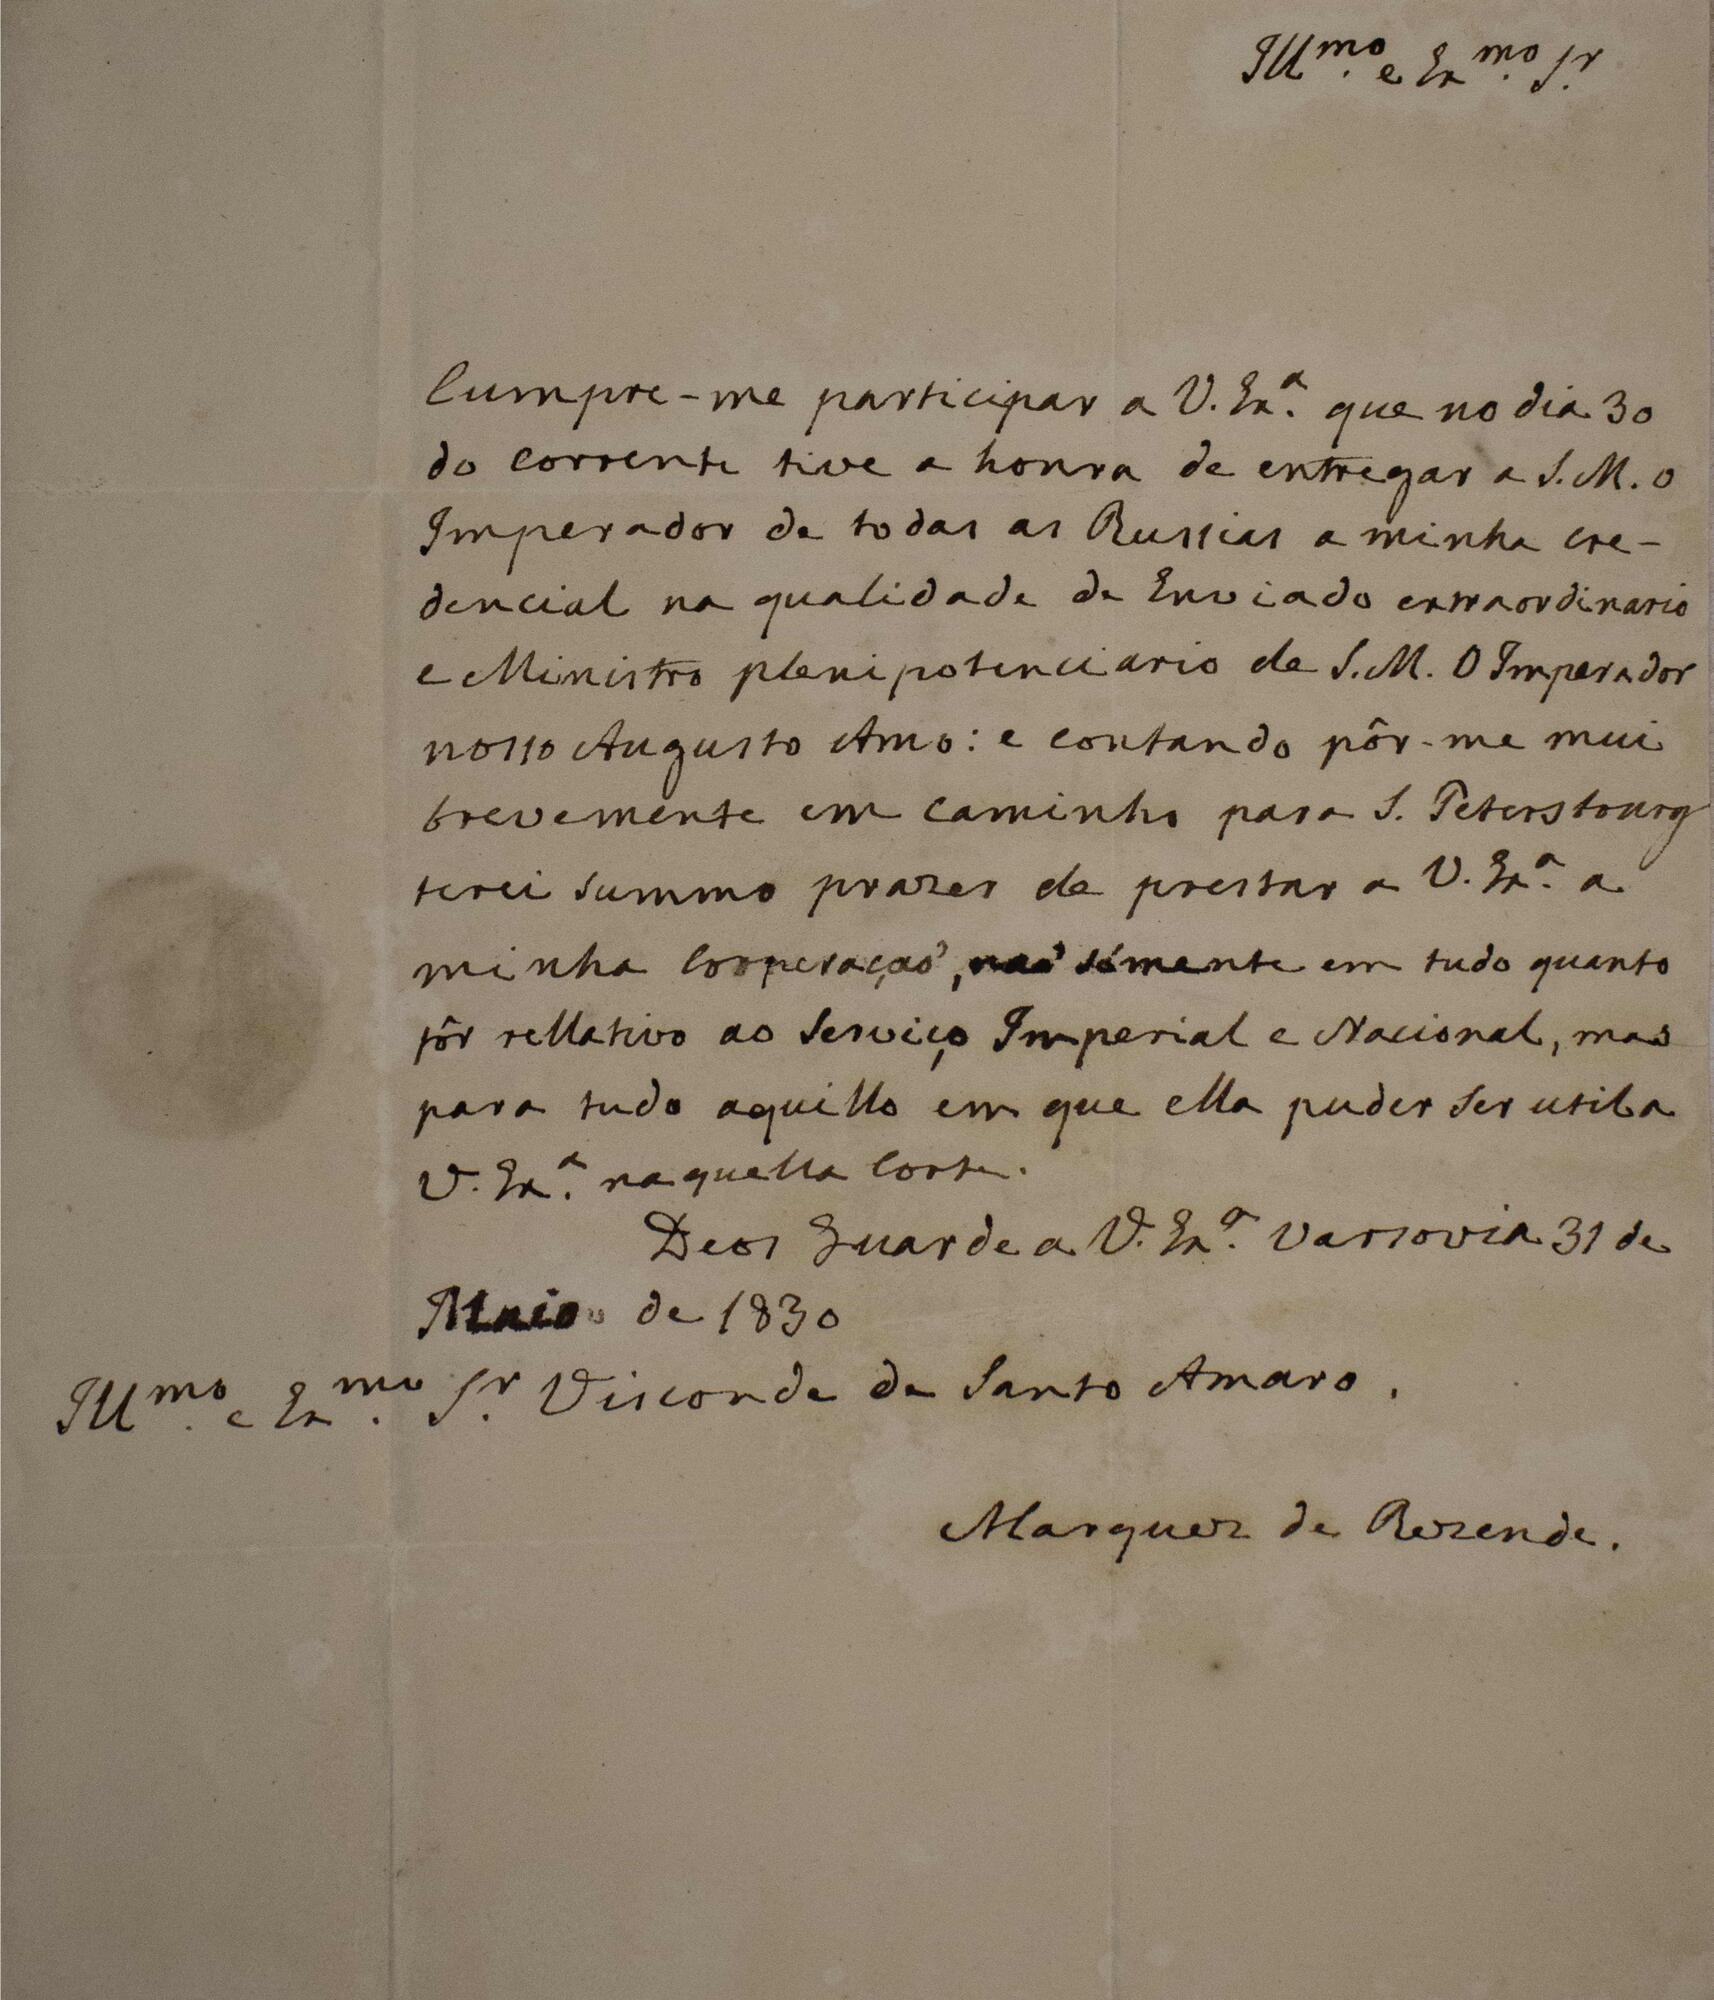 Ill.mo e Ex.mo Sr.
Cumpre-me participar a V. Ex.a que no dia 30
do corrente tive a honra de entregar a S. M. O
Imperador de todas as Russias a minha cre-
dencial na qualidade de Enviado extraordinario
e Ministro plenipotenciario de S. M. O Imperador
nosso Augusto Amo: e contando pôr-me mui
brevemente em caminho para S. Petersbourg
terei summo prazer de prestar a V. Ex.a a
minha cooperaçaõ, naõ sómente em tudo quanto
fôr rellativo ao Serviço Imperial e Nacional, mas
para tudo aquillo em que ella puder ser util a
V. Ex.a naquella Corte.
Deos Guarde a V. Ex.a Varsovia 31 de
Maio de 1830
Ill.mo e Ex.mo Sr. Visconde de Santo Amaro.
Marquez de Rezende.